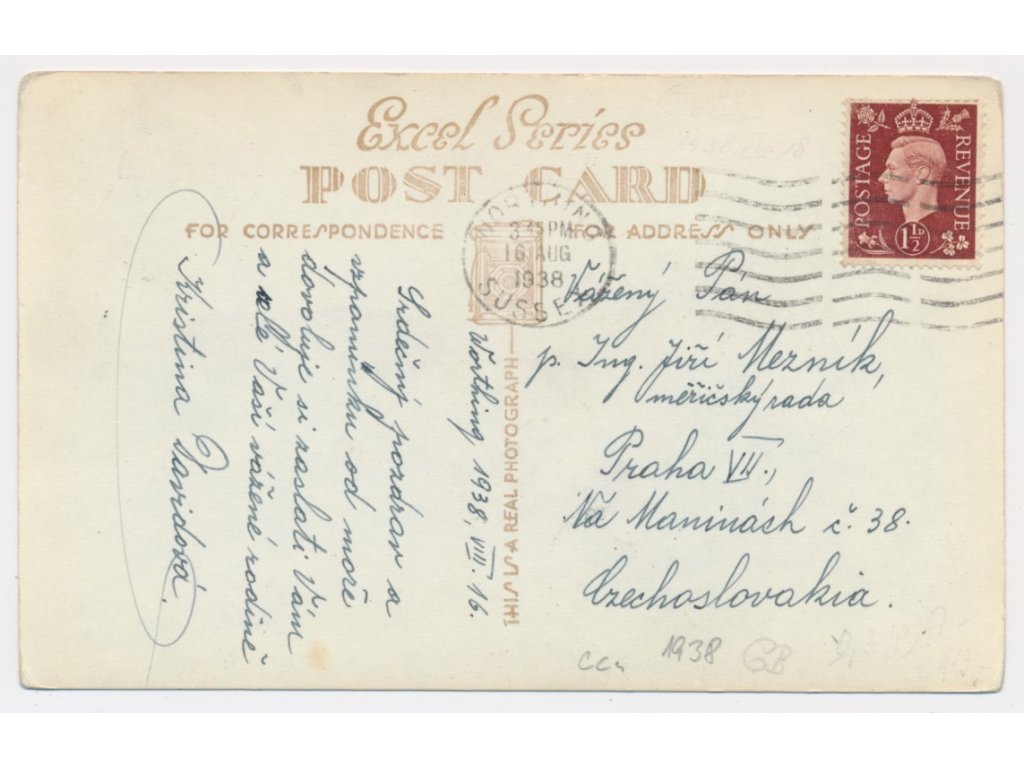 Excel Series
POST CARD
FOR CORRESPONDENCE
FOR ADDRESS ONLY
POSTAGE
REVENUE
1½D
3 45 PM
16 AUG
1938
SUSSEX
Worthing 1938, VIII. 16.
Srdečný pozdrav a
vzpomínku od moře
dovoluji si zaslati Vám
a celé Vaší vážené rodině
Kristina Davidová.
THIS IS A REAL PHOTOGRAPH
Vážený Pán
p. Ing. Jiří Mezník,
měřičský rada
Praha VII.,
Na Maninách č. 38.
Czechoslovakia.
1938
GB